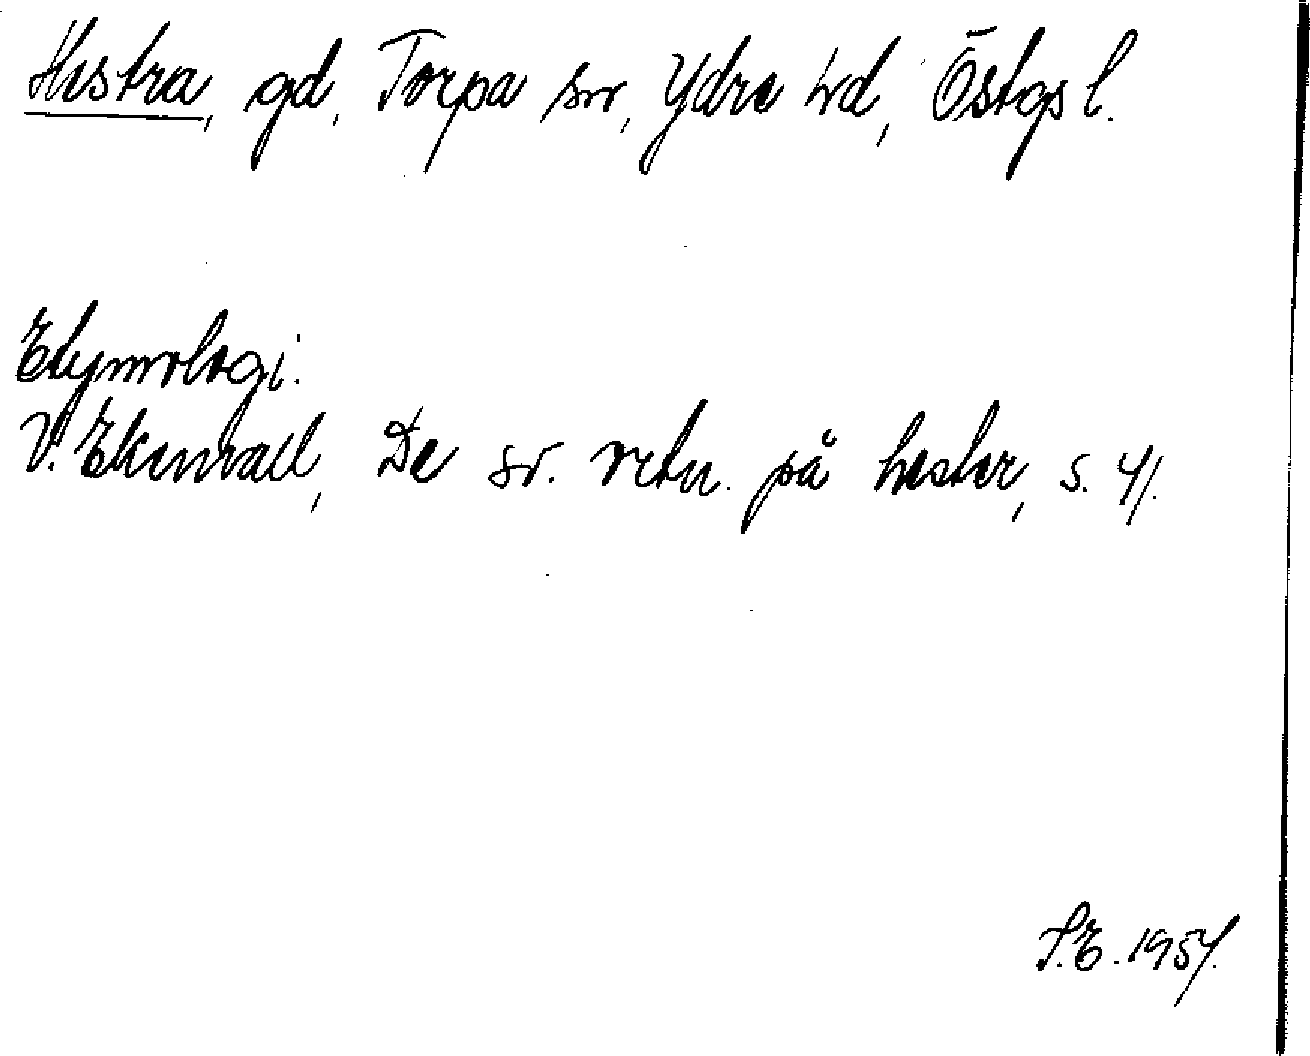 Hestra, gd, Torpa sn, Ydre hd, Östgs l.
Etymologi.
V. Ekenvall, De sv. ortn. på hester, s. 41.
S.E. 1957.